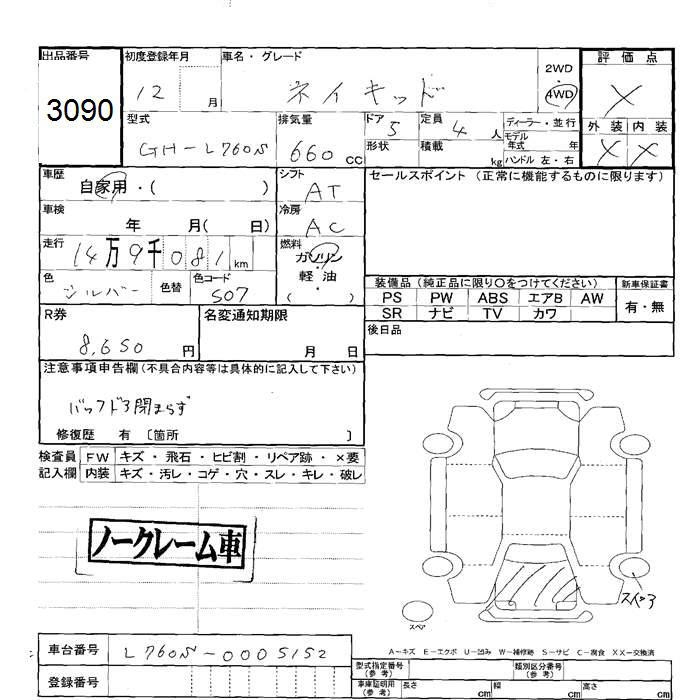 出品番号
3090
初度登録年月
12 月
車名・グレード
ネイキッド
2WD
4WD
評価点
X
型式
GH-L760S
排気量
660 cc
ドア 5
形状
定員 4 人
積載 kg
ディーラー・並行
モデル年式 年
ハンドル 左・右
外装 内装
X X
車歴
自家用・( )
シフト
AT
セールスポイント (正常に機能するものに限ります)
車検
年 月( 日)
冷房
AC
走行
14万9千081 km
燃料
ガソリン
・
軽油
( )
色
シルバー
色替
色コード
S07
装備品(純正品に限り○をつけてください)
PS PW ABS エアB AW
SR ナビ TV カワ
新車保証書
有・無
R券
8,650 円
名変通知期限
月 日
後日品
注意事項申告欄(不具合内容等は具体的に記入して下さい)
バックドア閉まらず
修復歴 有 〔箇所 〕
検査員記入欄
FW キズ・飛石・ヒビ割・リペア跡・×要
内装 キズ・汚レ・コゲ・穴・スレ・キレ・破レ
ノークレーム車
スペア
A－キズ E－エクボ U－凹み W－補修跡 S－サビ C－腐食 XX－交換済
車台番号
L760S-0005152
登録番号
型式指定番号(参考)
類別区分番号(参考)
車庫証明用(参考) 長さ cm 幅 cm 高さ cm